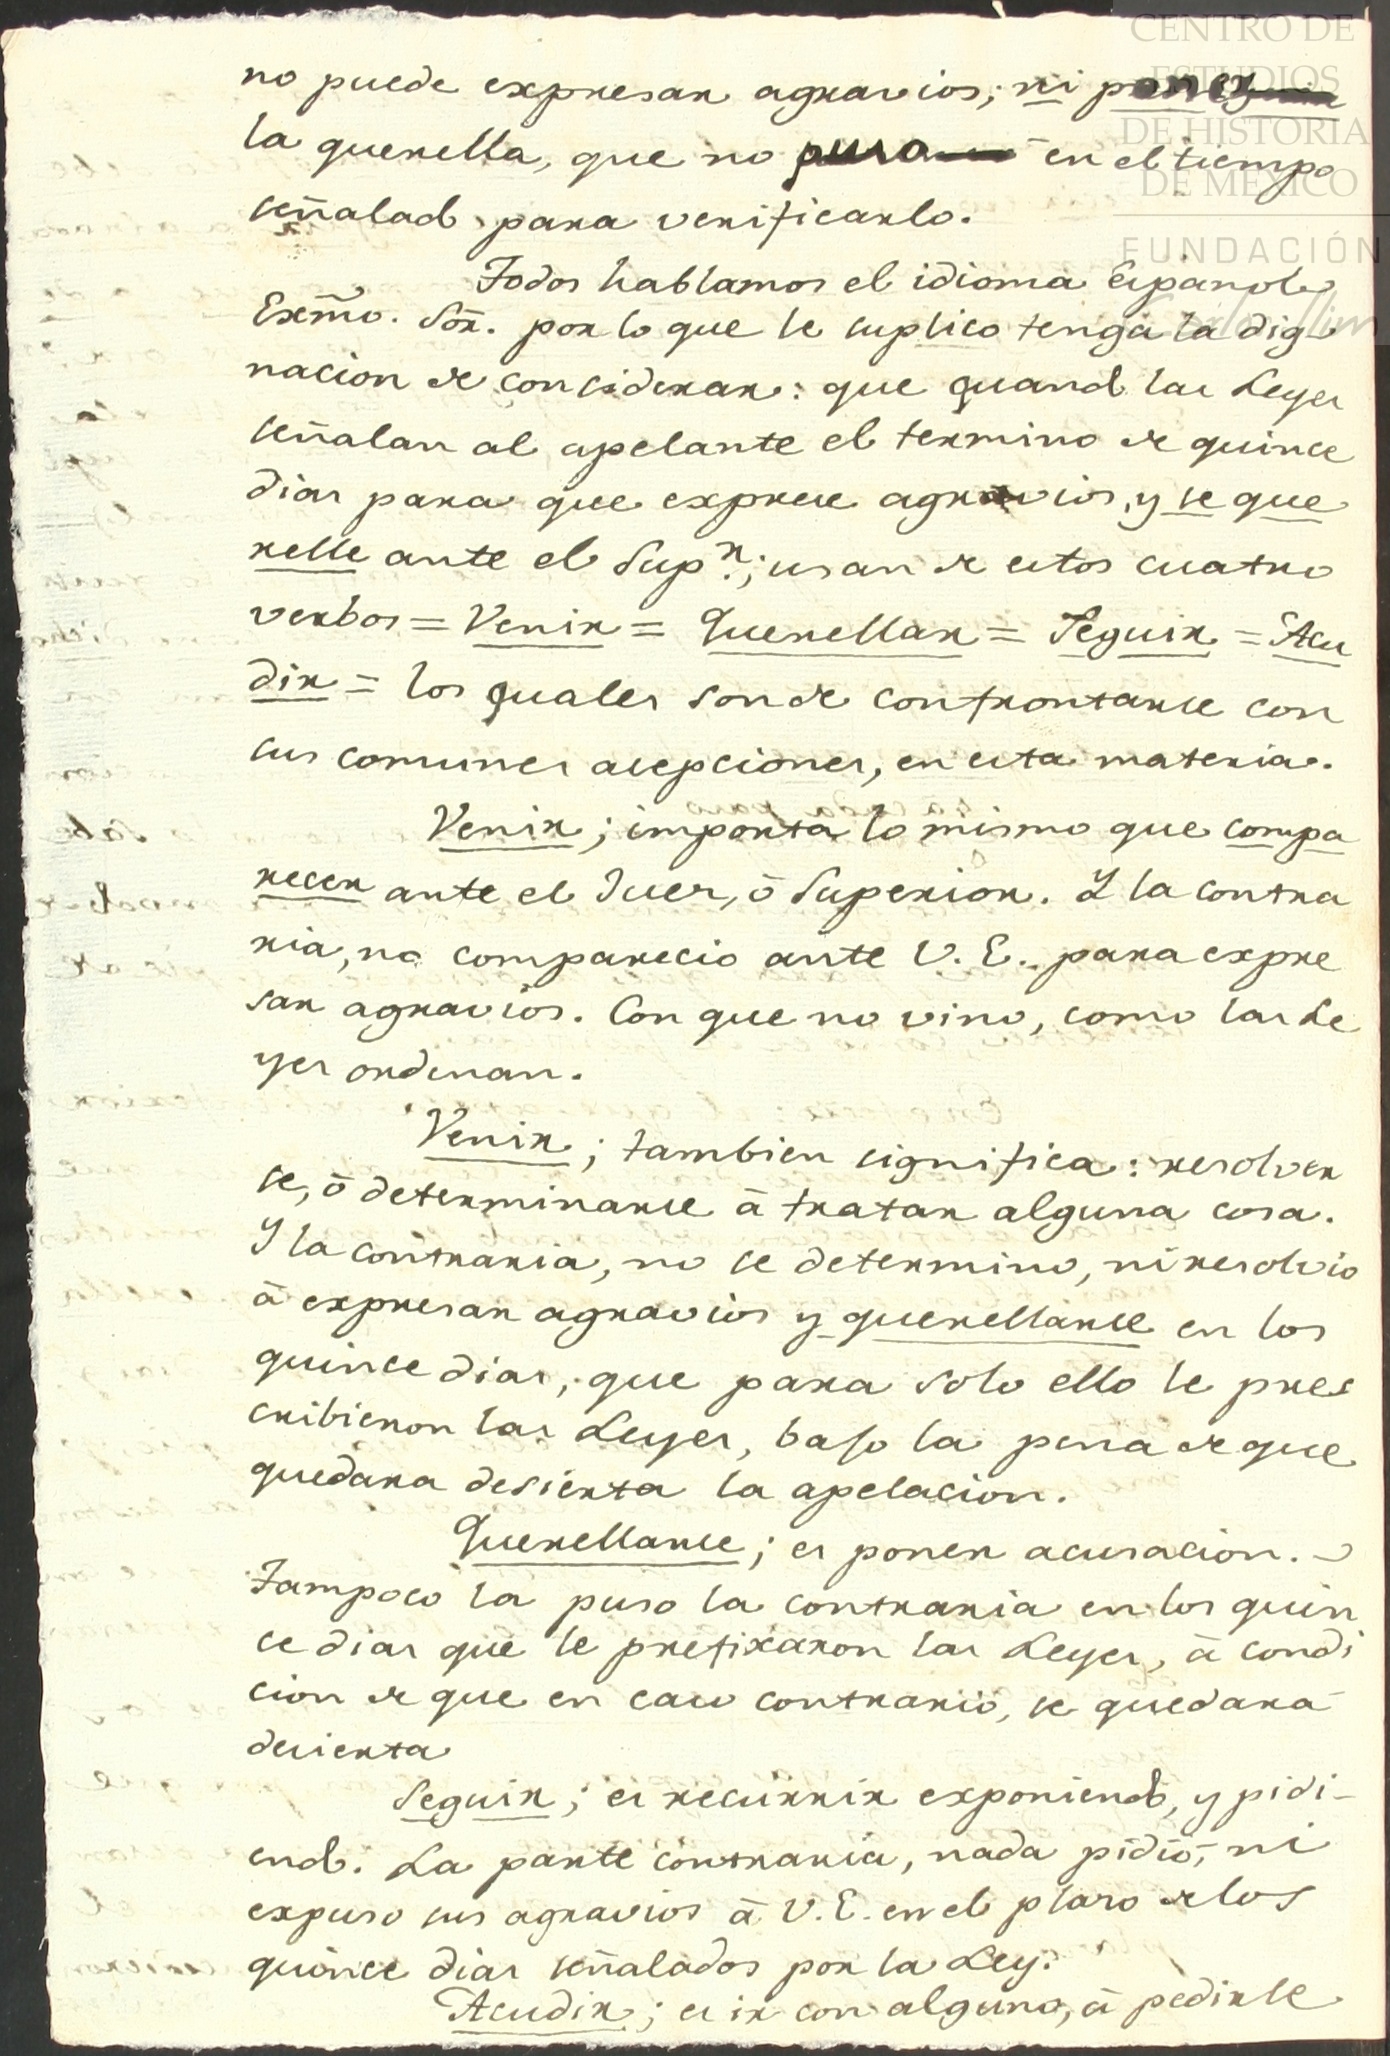 CENTRO DE
ESTUDIOS
DE HISTORIA
DE MÉXICO
FUNDACIÓN
no puede expresar agravios; ni poner
la querella, que no puso en el tiempo
señalado para verificarlo.
Todos hablamos el idioma Español
Exmõ. Sõr. por lo que le suplico tenga la dig
nacion de considerar: que quando las Leyes
señalan al apelante el termino de quince
dias para que exprese agravios, y se que
relle ante el Sup.r; usan de estos cuatro
verbos = Venir = Querellar = Seguir = Acu
dir = los quales son de confrontarse con
sus comunes acepciones, en esta materia.
Venir; importa lo mismo que compa
recer ante el Juez, ō Superior. Y la contra
ria, no comparecio ante V. E. para expre
sar agravios. Con que no vino, como las Le
yes ordenan.
Venir; tambien significa: resolver
se, ō determinarse ā tratar alguna cosa.
Y la contraria, no se determino, ni resolvio
ā expresar agravios y querellarse en los
quince dias, que para solo ello le pres
cribieron las Leyes, bajo la pena de que
quedara desierta la apelacion.
Querellarse; es poner acusacion.
Tampoco la puso la contraria en los quin
ce dias que le prefixaron las Leyes, ā condi
cion de que en caso contrario, se quedara
desierta
Seguir; es recurrir exponiendo, y pidi-
endo. La parte contraria, nada pidió, ni
expuso sus agravios ā V. E. en el plazo de los
quince dias señalados por la Ley.
Acudir; es ir con alguno, ā pedirle